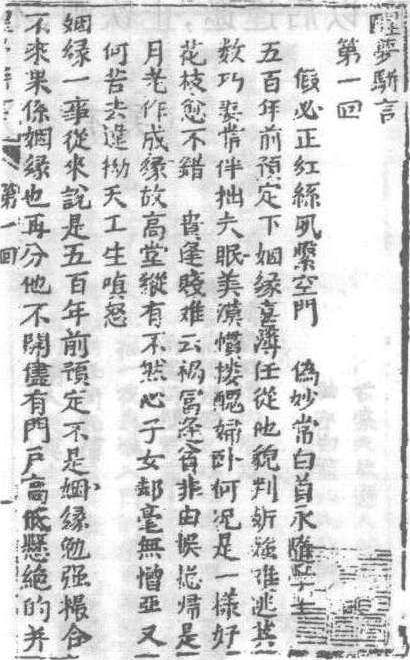 醒夢駢言
第一回
假必正紅絲夙繫空門 偽妙常白首永隨學士
五百年前預定下姻緣喜薄任從他貌判妍媸難逃其
數巧妻常伴拙夫眠美漢慣摟醜婦卧何况是一樣好
花枝愈不錯 貴逢賤难云禍富逢貧非由悮總㷌是
月老作成緣故高堂縱有不然心子女却毫無憎惡又
何苦去違拗天工生嗔怒
姻緣一事從來說是五百年前預定不是姻緣勉强撮合
不來果係姻緣也再分他不開儘有門戶高低懸絕的并
第一回